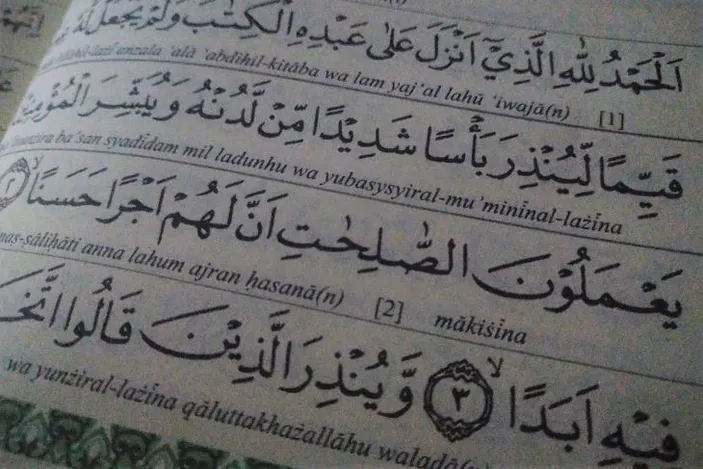 اَلْحَمْدُ لِلّٰهِ الَّذِيْٓ اَنْزَلَ عَلٰى عَبْدِهِ الْكِتٰبَ وَلَمْ يَجْعَلْ لَّهٗ
anzala ‘alā ‘abdihil-kitāba wa lam yaj‘al lahū ‘iwajā(n) [1]
قَيِّمًا لِّيُنْذِرَ بَأْسًا شَدِيْدًا مِّنْ لَّدُنْهُ وَيُبَشِّرَ
ba’san syadīdam mil ladunhu wa yubasysyiral-mu’minīnal-lażīna
يَعْمَلُوْنَ الصّٰلِحٰتِ اَنَّ لَهُمْ اَجْرًا حَسَنًاۙ ٢
nas-sāliḥāti anna lahum ajran ḥasanā(n) [2] mākiśīna
فِيْهِ اَبَدًاۙ ٣ وَّيُنْذِرَ الَّذِيْنَ قَالُوا اتَّخَ
wa yunżiral-lażīna qāluttakhażallāhu waladā(n)